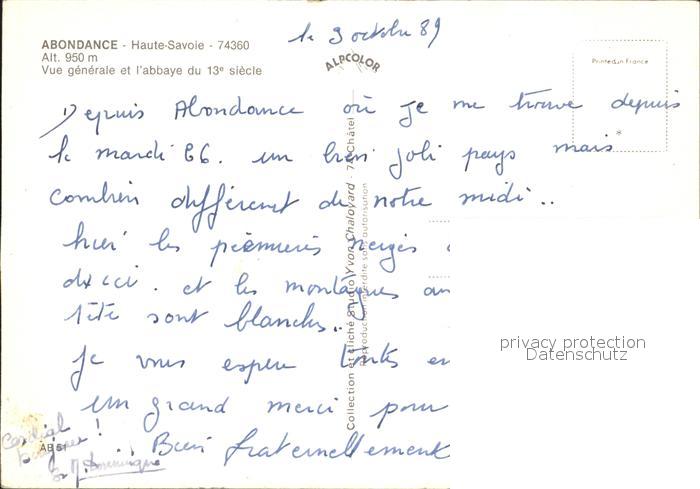 ABONDANCE - Haute-Savoie - 74360
Alt. 950 m
Vue générale et l'abbaye du 13e siècle
ALPCOLOR
Printed in France
le 9 octobre 89
Depuis Abondance où je me trouve depuis
le mardi 26. un bien joli pays mais
combien différent de notre midi..
hier les premières neiges
d'ici. et les montagnes au
tête sont blanches..
je vous espère toutes en
un grand merci pour
! .. Bien fraternellement
Cordial
bonjour
M. Dominique
AB 51
Collection et cliché Studio Yvon Chaloyard - 74 Châtel
Reproduction interdite sous autorisation
privacy protection
Datenschutz